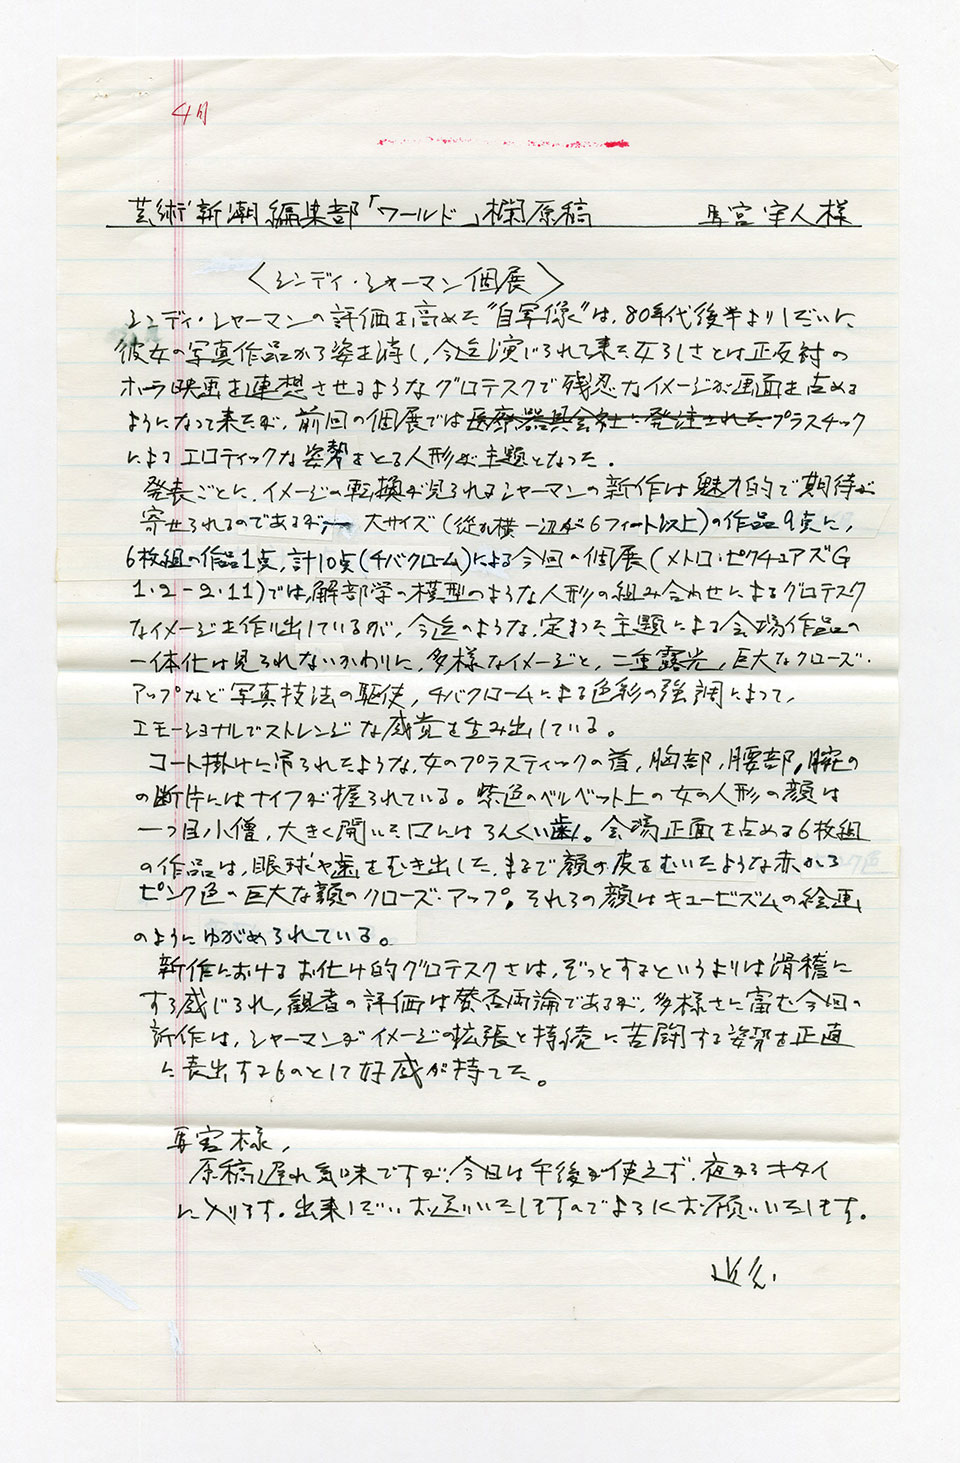 4月
芸術新潮編集部「ワールド」欄原稿 馬宮宇人様
〈シンディ・シャーマン個展〉
シンディ・シャーマンの評価を高めた"自写像"は、80年代後半よりしだいに
彼女の写真作品から姿を消し、今迄演じられて来た女らしさとは正反対の
ホラー映画を連想させるようなグロテスクで残忍なイメージが画面を占める
ようになって来たが、前回の個展では医療器具会社に発注されたプラスチック
によるエロティックな姿勢をとる人形が主題となった。
発表ごとに、イメージの転換が見られるシャーマンの新作は魅力的で期待が
寄せられるのであるが、大サイズ(縦か横一辺が6フィート以上)の作品9点に、
6枚組の作品1点、計10点(チバクローム)による今回の個展(メトロ・ピクチュアズG
1・2-2・11)では、解部学の模型のような人形の組み合わせによるグロテスク
なイメージを作り出しているが、今迄のような、定まった主題による会場作品の
一体化は見られないかわりに、多様なイメージと、二重露光、巨大なクローズ・
アップなど写真技法の駆使、チバクロームによる色彩の強調によって、
エモーショナルでストレンジな感覚を生み出している。
コート掛けに吊られたような、女のプラスティックの首、胸部、腰部、腕の
の断片にはナイフが握られている。紫色のベルベット上の女の人形の顔は
一つ目小僧、大きく開いた口にはらんくい歯。会場正面を占める6枚組
の作品は、眼球や歯をむき出した、まるで顔の皮をむいたような赤から
ピンク色の巨大な顔のクローズ・アップ。それらの顔はキュービズムの絵画
のようにゆがめられている。
新作におけるお化け的グロテスクさは、ぞっとするというよりは滑稽に
すら感じられ、観者の評価は賛否両論であるが、多様さに富む今回の
新作は、シャーマンがイメージの拡張と持続に苦闘する姿勢を正直
に表出するものとして好感が持てた。
馬宮様、
原稿遅れ気味ですが、今日は午後が使えず、夜からキタイ
に入ります。出来しだいお送りいたしますのでよろしくお願いいたします。